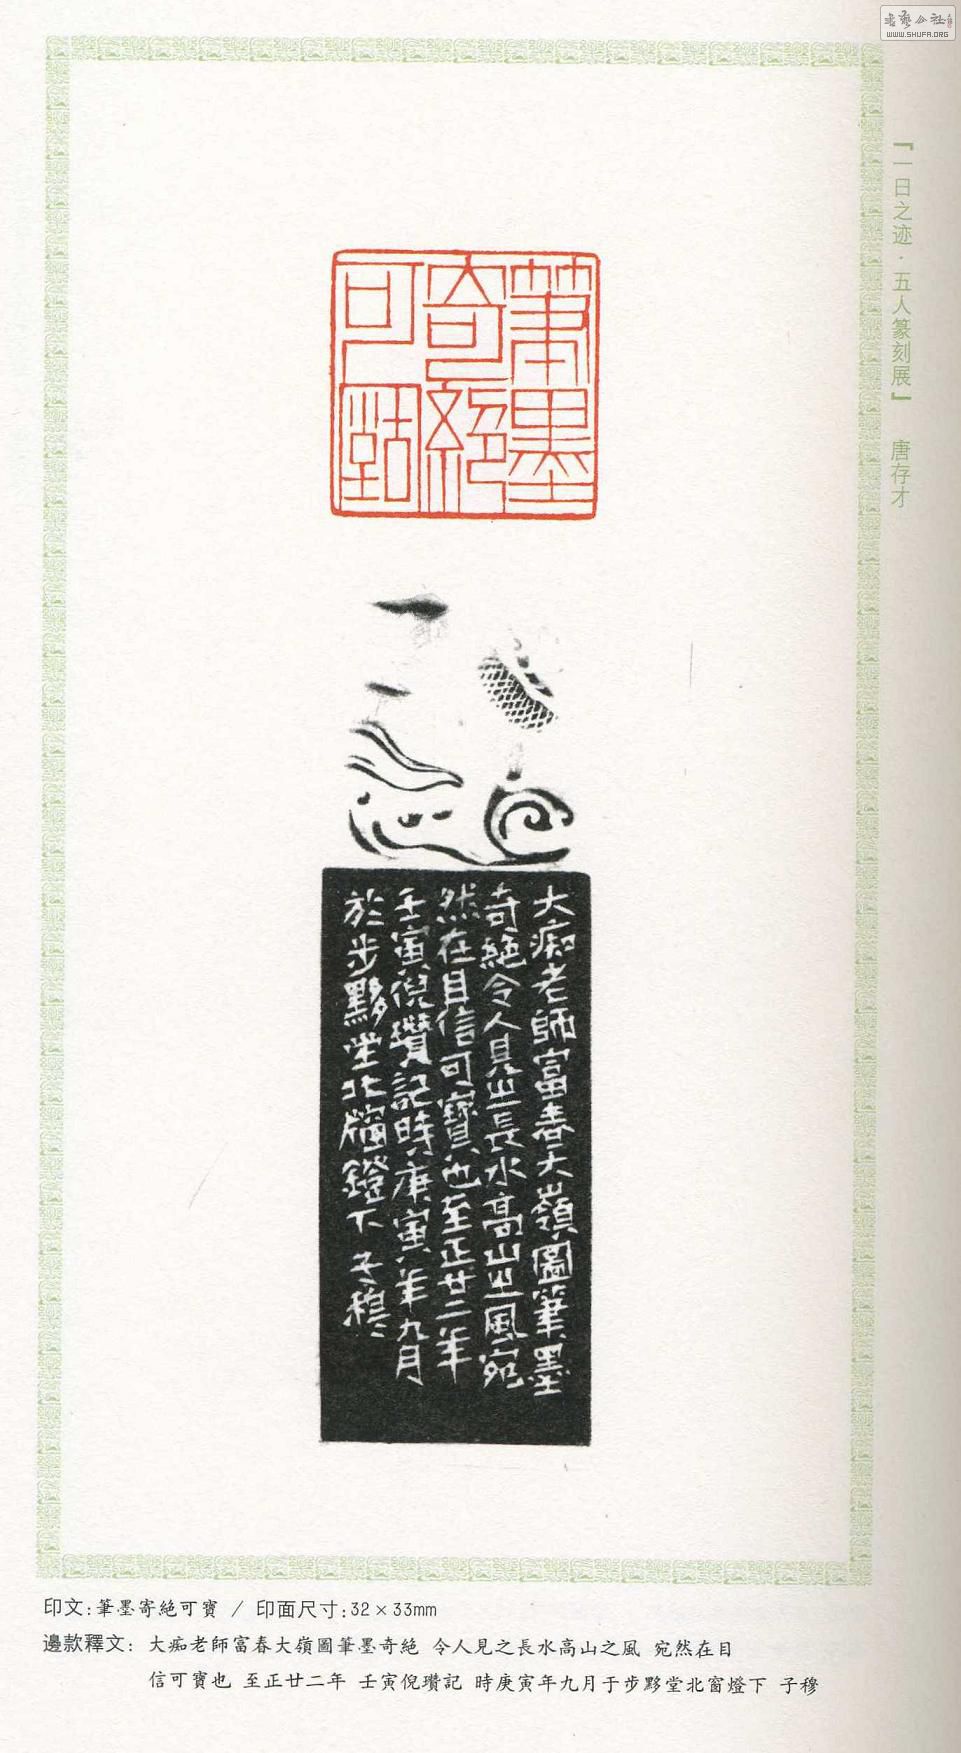 書藝公社
WWW.SHUFA.ORG
『一日之迹·五人篆刻展』 唐存才
筆墨
奇絶
可寶
大痴老師富春大嶺圖筆墨
奇絶令人見之長水高山之風宛
然在目信可寶也至正廿二年
壬寅倪瓚記時庚寅年九月
於步黟堂北窗鐙下子穆
印文:筆墨寄絶可寶 / 印面尺寸:32×33mm
邊款釋文: 大痴老師富春大嶺圖筆墨奇絶 令人見之長水高山之風 宛然在目
信可寶也 至正廿二年 壬寅倪瓚記 時庚寅年九月于步黟堂北窗燈下 子穆